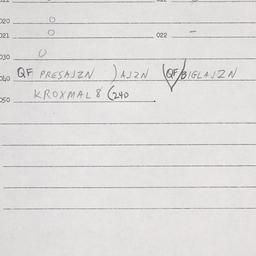 020 0
021 0 022 -
030 0
040 QF PRESAJZN ) AJZN (QF BIGLAJZN
050 KROXMAL 8 (240